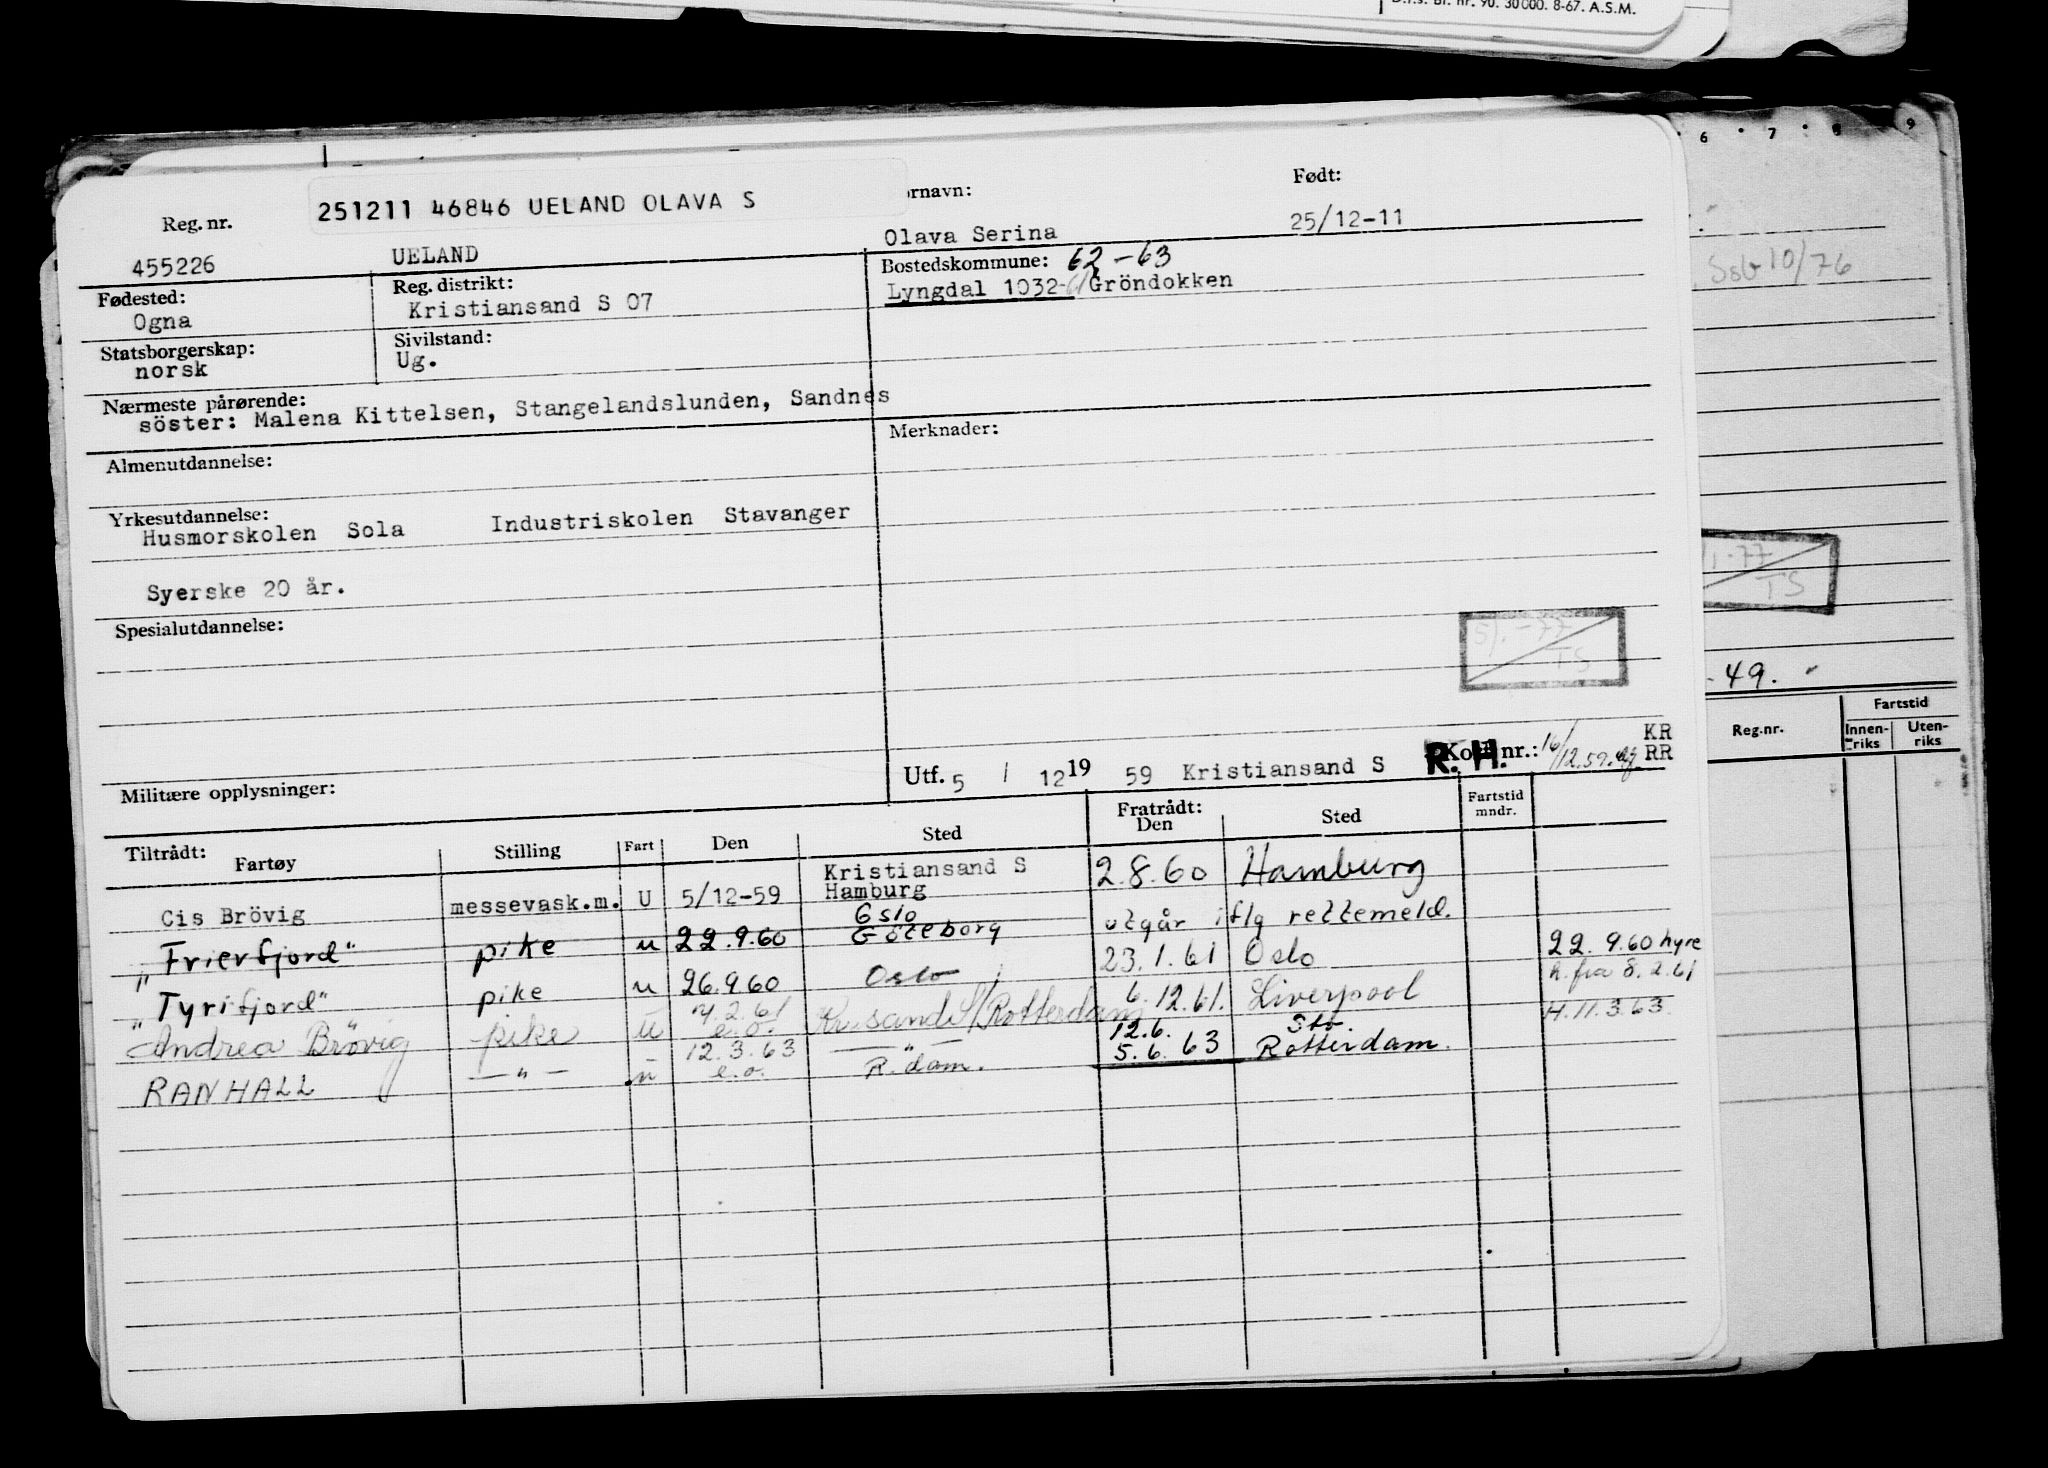 D.f.s. Bl. nr. 90. 30000. 8-67. A.S.M.
6 7 8 9
251211 46846 UELAND OLAVA S
Reg. nr. ornavn: Født:
455226 UELAND Olava Serina 25/12-11
Fødested: Reg. distrikt: Bostedskommune: 62-63
Ogna Kristiansand S 07 Lyngdal 1032-61 Gröndokken
Statsborgerskap: Sivilstand:
norsk Ug.
Nærmeste pårørende:
söster: Malena Kittelsen, Stangelandslunden, Sandnes
Almenutdannelse: Merknader:
Yrkesutdannelse:
Husmorskolen Sola Industriskolen Stavanger
Syerske 20 år.
Spesialutdannelse:
5/.-77
TS
Militære opplysninger: Utf. 5 / 12 19 59 Kristiansand S R.H. nr.: 16/12.59. KR RR
Tiltrådt: Fratrådt:
Fartøy Stilling Fart Den Sted Den Sted Fartstid mndr.
Cis Brövig messevask.m. U 5/12-59 Kristiansand S Hamburg 2.8.60 Hamburg
"Frierfjord" pike u 22.9.60 Oslo Göteborg utgår iflg rettemeld.
"Tyrifjord" pike u 26.9.60 Oslo 23.1.61 Oslo 22.9.60 hyre
Andrea Brövig pike u 7.2.61 e.o. Kr.sand S/Rotterdam 6.12.61. Liverpool h. fra 8.2.61
RANHALL — " — u 12.3.63 e.o. — " — R.dam. 12.6. 5.6.63 Sto Rotterdam. H.11.3.63
Ssb 10/76
1.-77
TS
- 49.
Reg.nr. Fartstid
Innen-riks Uten-riks